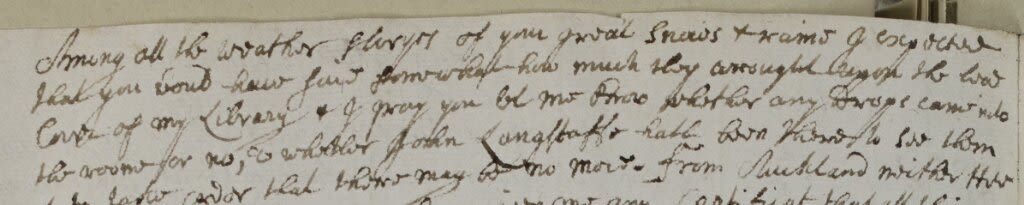 Among all the weather storyes of your great snows & rains I expected
that you would have said somewhat how much they wrought upon the lead
Cover of my Library & I pray you let me know whether any drops came into
the roome or no, & whether John Langstaffe hath been there to see them
& to take order that there may be no more. From Auckland neither the
me any that all